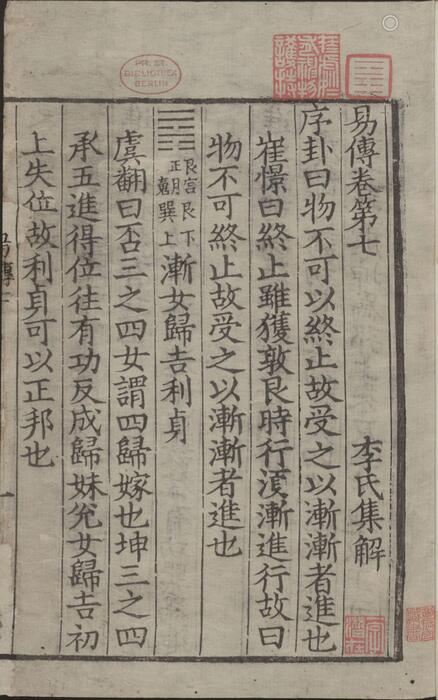 易傳卷第七 李氏集解
序卦曰物不可以終止故受之以漸漸者進也
崔憬曰終止雖獲敦艮時行須漸進行故曰
物不可終止故受之以漸漸者進也
艮宮
正月
艮下
巽上
漸女歸吉利貞
虞翻曰否三之四女謂四歸嫁也坤三之四
承五進得位往有功反成歸妹兊女歸吉初
上失位故利貞可以正邦也
易傳七
一
PR. ST.
BIBLIOTHEK
BERLIN